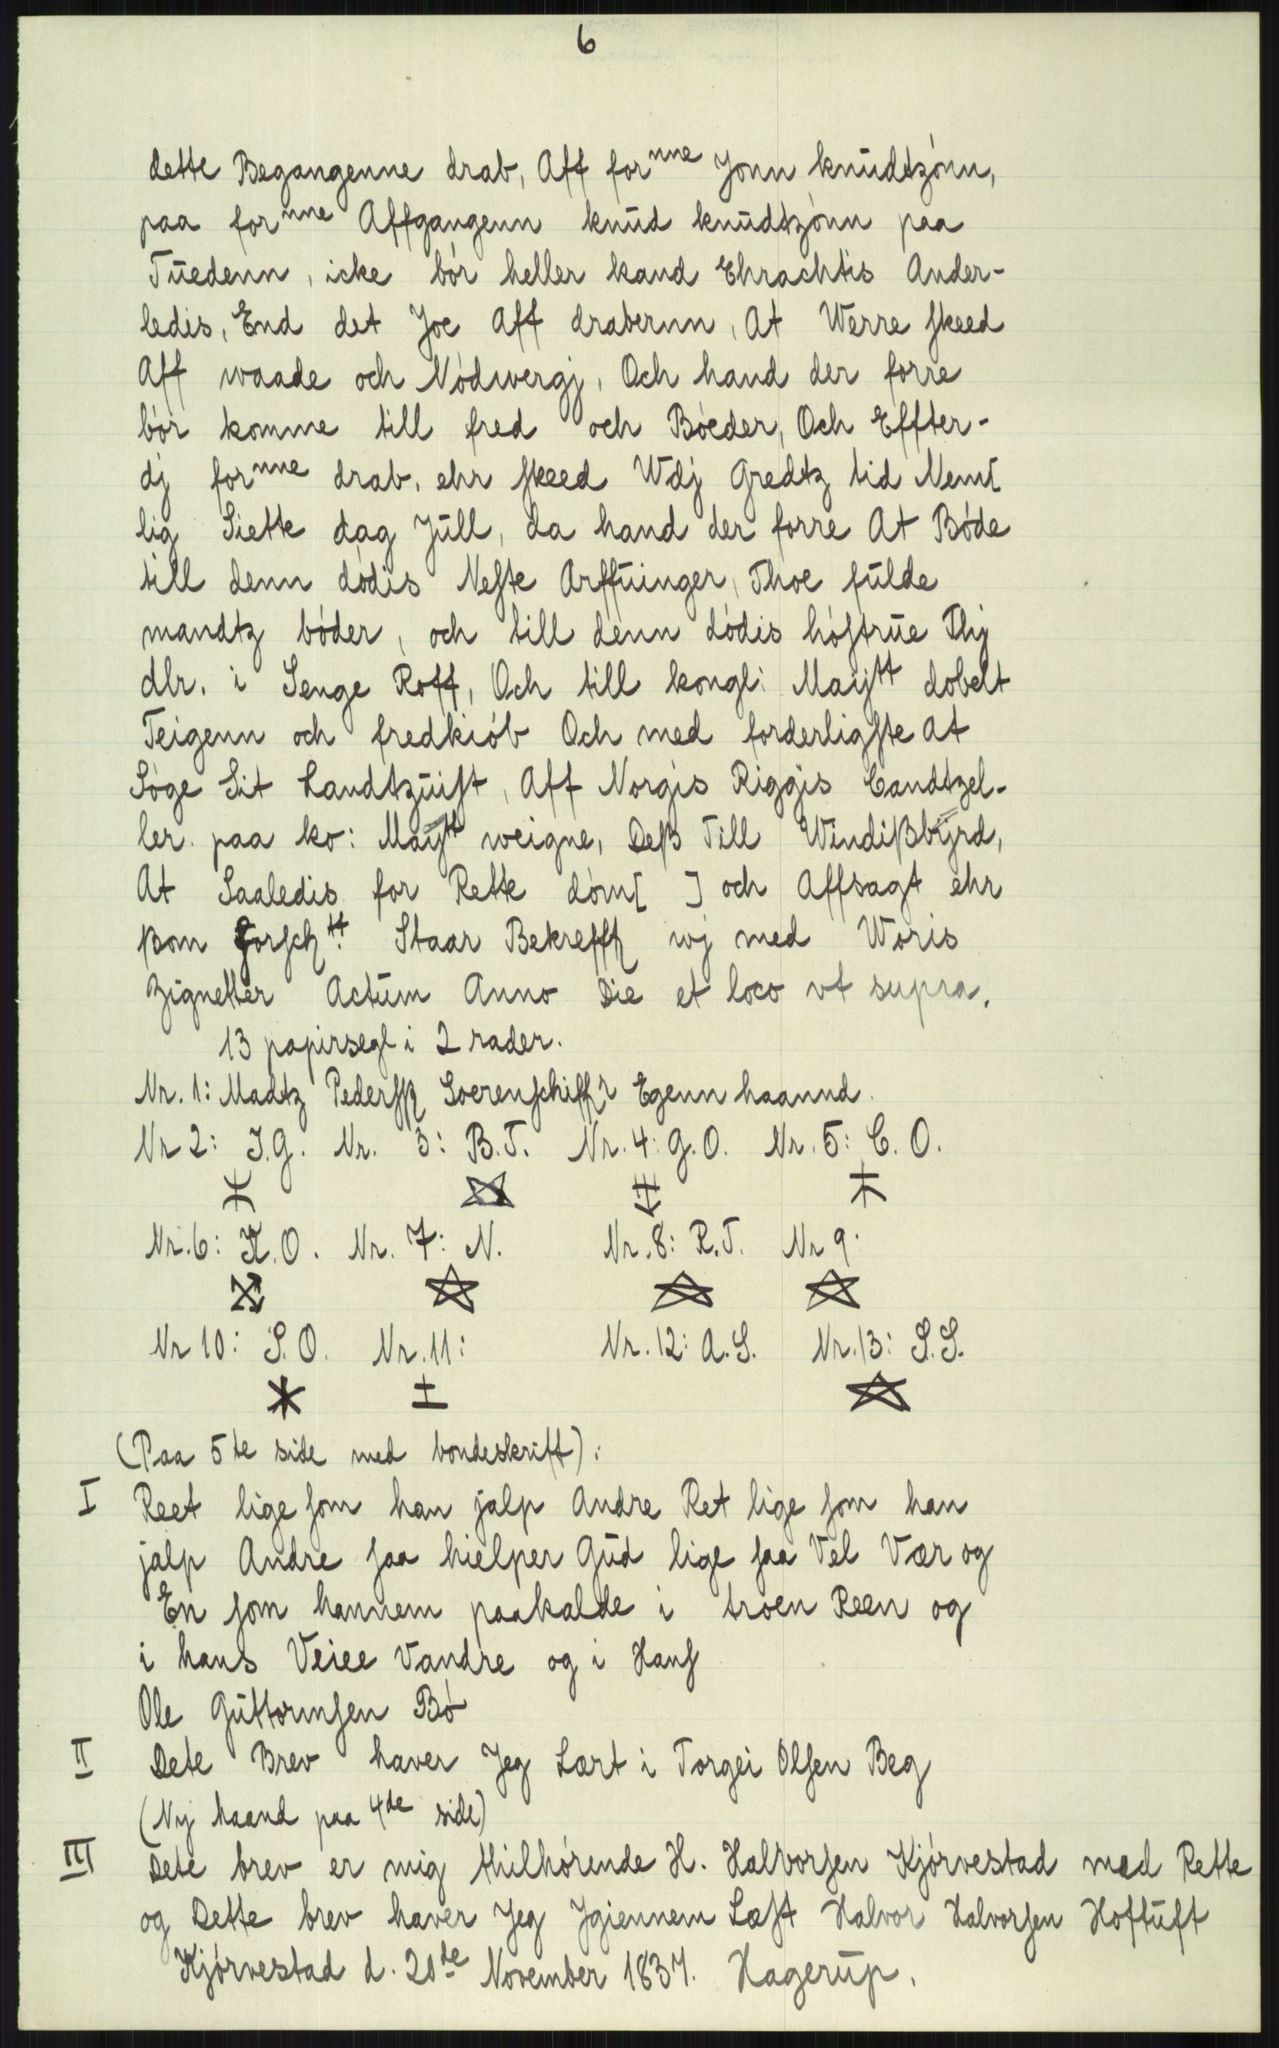 6
dette Begangenne drab, Aff for nne Jonn knudtzónn,
paa for nne Affgangenn knud knudtzónn paa
Tuedenn, icke bór heller kand Ehrachtis Ander-
ledis, End det Joe Aff drabernn, At Werre skeed
Aff waade och Nódwergj, Och hand der forre
bór komme till fred och Bóeder, Och Effter-
dj for nne drab, ehr skeed Wdj Gredtz tid Nem[
lig Siette dag Jull, da hand der forre At Bóde
till denn dódis Neste Arffuinger, Thoe fulde
mandtz bóder, och till denn dódis hóstrue Thj
dlr. i Senge Roff, Och till kongl: Maijtt dobelt
Teigenn och fredkiób Och med forderligste At
Sóge Sit Landtzuist, Aff Norgis Riggis Candtzel-
ler paa ko: Maijtt weigne, Deß Till Windißbyrd,
At Saaledis for Rette dóm[ ] och Affsagt ehr
ßom Forsch tt. Staar Bekrefft wj med Woris
Zignetter Actum Anno Die et loco vt supra.
13 papirsegl i 2 rader.
Nr. 1: Madtz Pederss Soerenschiffr Egenn haannd.
Nr 2: J.G. Nr. 3: B.T. Nr. 4: G.O. Nr. 5: C.O.
Nr. 6: K.O. Nr. 7: N. Nr. 8: R.T. Nr 9.
Nr 10: S.O. Nr. 11: Nr. 12: A.S. Nr. 13: S.S.
(Paa 5te side med bondeskrift):
I Reet lige som han jalp Andre Ret lige som han
jalp Andre saa hielper Gud lige saa Vel Vær og
En som hannem paakalde i troen Reen og
i hans Veiee Vandre og i Hans
Ole Guttormsen Bó
II Dete Brev haver Jeg Lært i Torgei Olsen Beg
(Ny haand paa 4de side)
III Dete brev er mig thilhórende H. Halvorsen Kjórvestad med Rette
og Dette brev haver Jeg Jgiennem Læst Halvor Halvorsen Hoftuft
Kjórvestad d. 20de November 1837. Hagerup.